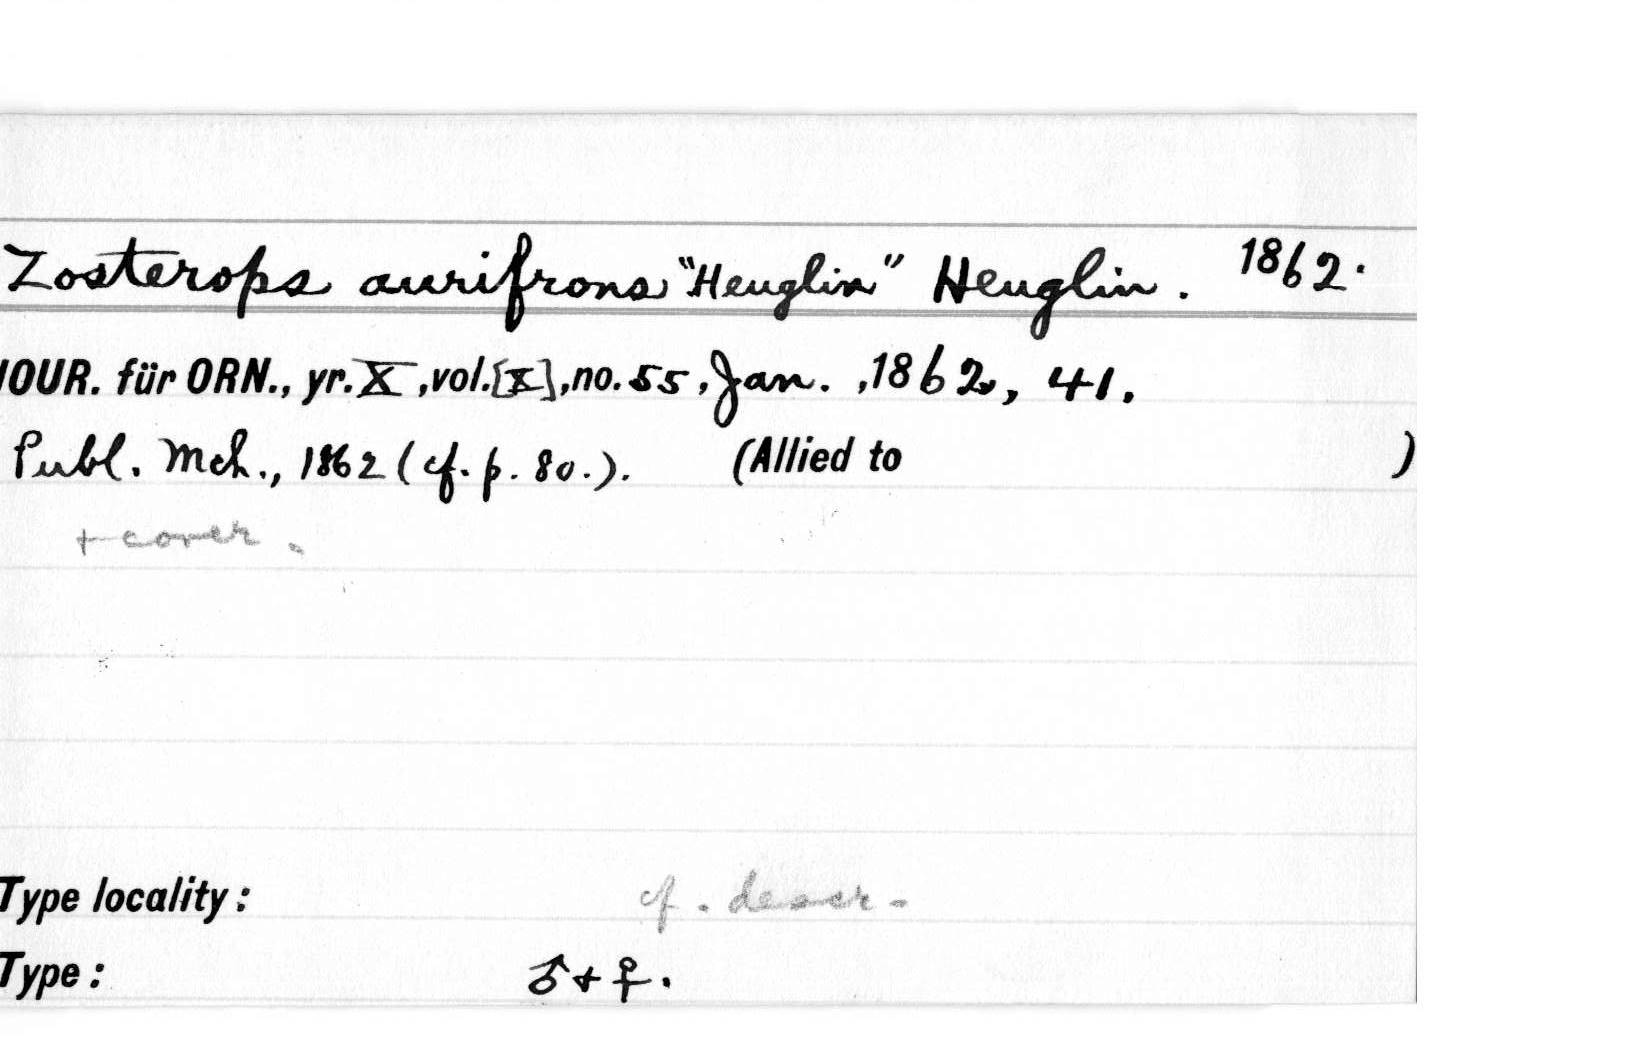 Zosterops aurifrons "Heuglin" Heuglin. 1862.
JOUR. für ORN., yr. X, vol. [X], no. 55, Jan., 1862, 41.
Publ. Mch., 1862 (cf. p. 80.). (Allied to )
+ cover.
Type locality: cf. descr.
Type: ♂ + ♀.